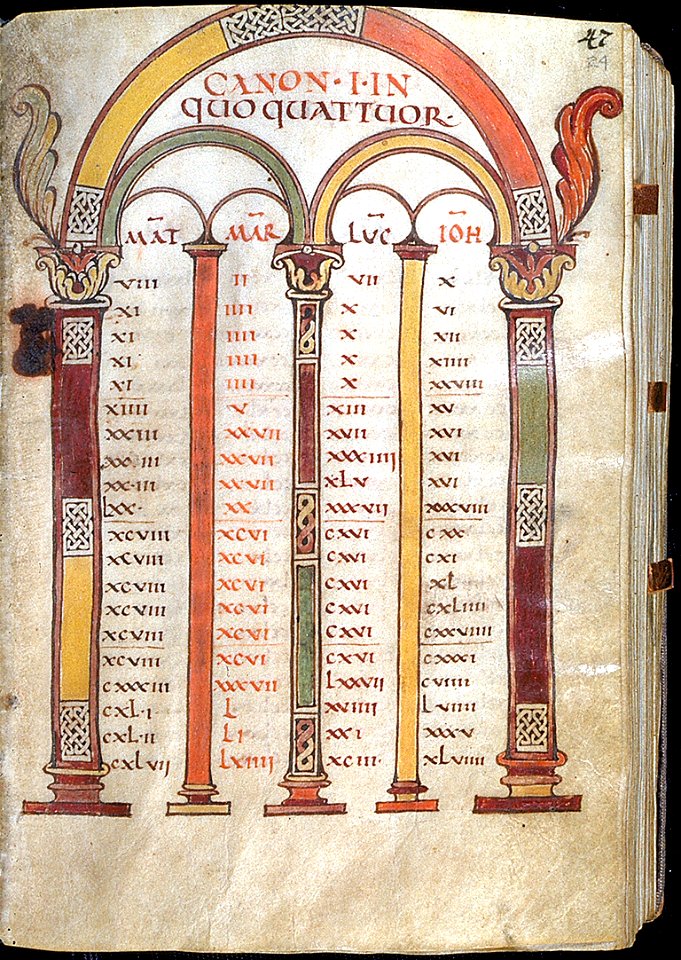 47
84
CANON · I · IN
QUO QUATTUOR ·
MAT MAR LUC IOH
VIII II VII X
XI IIII X VI
XI IIII X XII
XI IIII X XIIII
XI IIII X XXVIII
XIIII V XIII XV
XXIII XXVII XVII XVI
XXIII XXVII XXXIIII XVI
XXIII XXVII XLV XVI
LXX · XX XXXVII XXXVIII
XCVIII XCVI CXVI CXX
XCVIII XCVI CXVI CXI
XCVIII XCVI CXVI XL
XCVIII XCVI CXVI CXLIIII
XCVIII XCVI CXVI CXXVIIII
XCVIII XCVI CXVI CXXXI
CXXXIII XXXVII LXXVII CVIIII
CXL · I L XVIIII LVIIII
CXL · II LI XXI XXXV
CXLVII LXIIII XCIII · XLVIIII